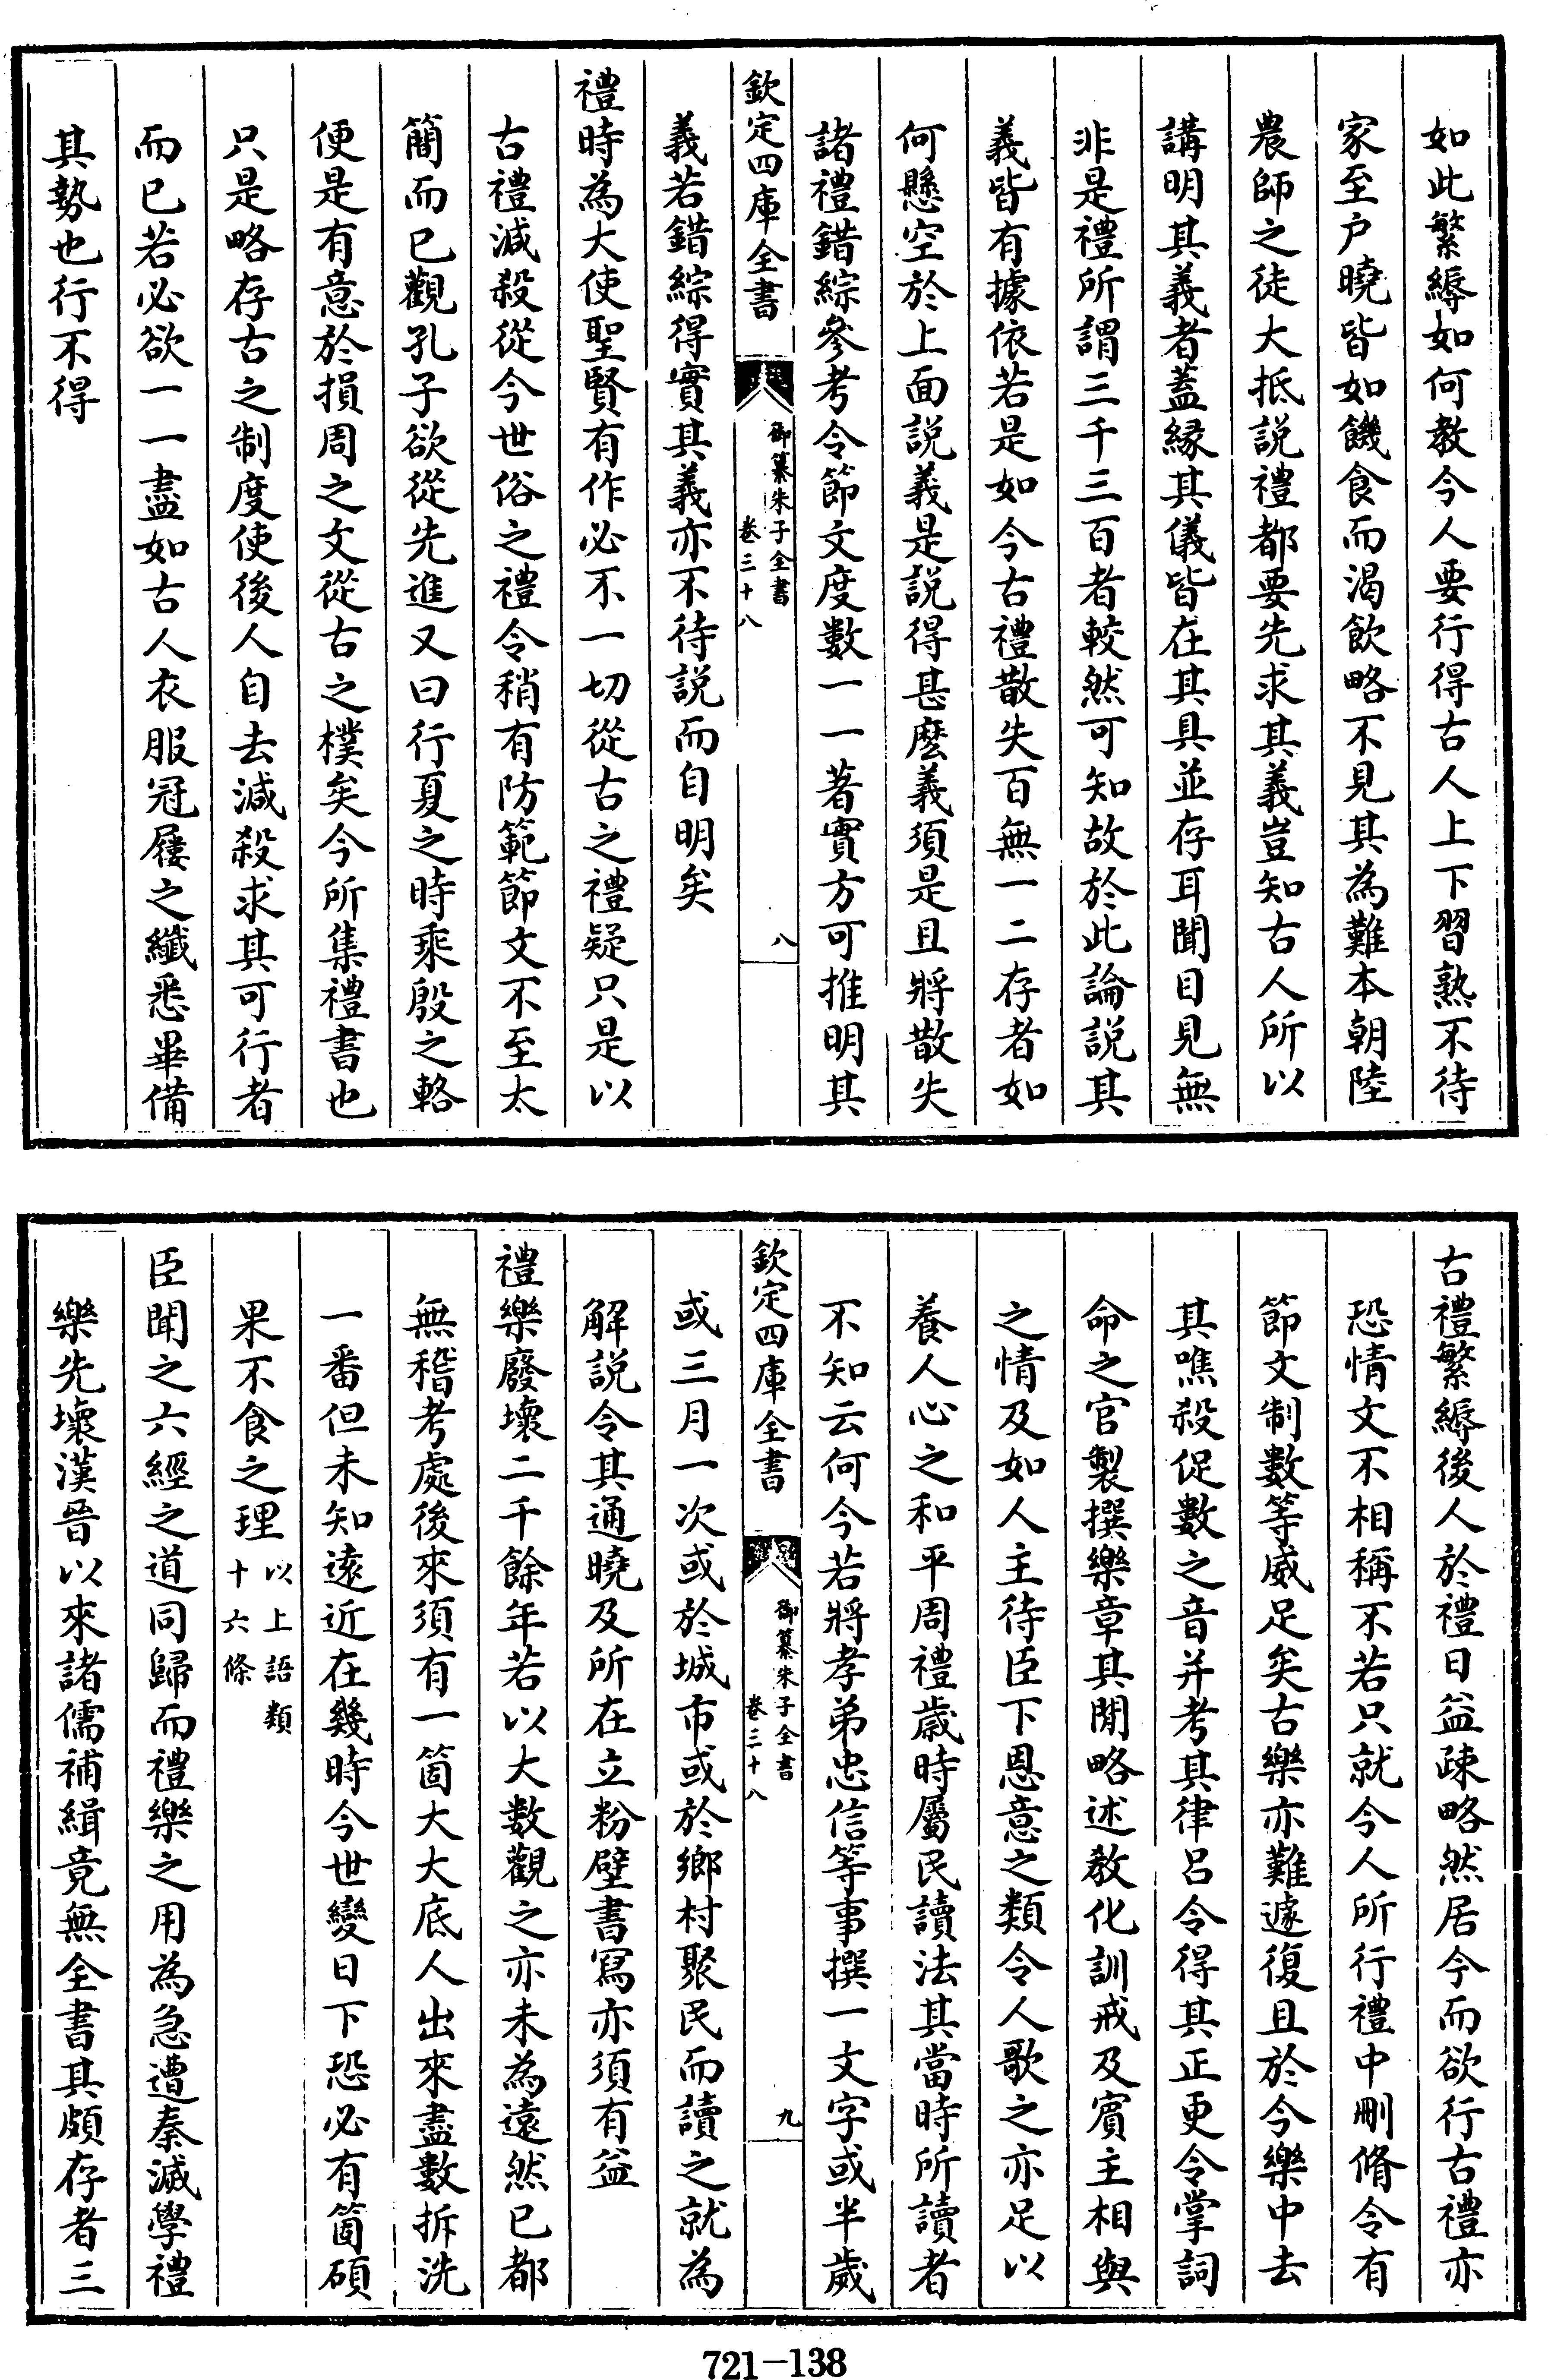 如此繁縟如何教今人要行得古人上下習熟不待
家至户曉皆如饑食而渴飲略不見其為難本朝陸
農師之徒大抵説禮都要先求其義豈知古人所以
講明其義者蓋緣其儀皆在其具並存耳聞目見無
非是禮所謂三千三百者較然可知故於此論説其
義皆有據依若是如今古禮散失百無一二存者如
何懸空於上面説義是説得甚麽義須是且將散失
諸禮錯綜參考令節文度數一一著實方可推明其
欽定四庫全書
御纂朱子全書
卷三十八
八
義若錯綜得實其義亦不待説而自明矣
禮時為大使聖賢有作必不一切從古之禮疑只是以
古禮減殺從今世俗之禮令稍有防範節文不至太
簡而已觀孔子欲從先進又曰行夏之時乘殷之輅
便是有意於損周之文從古之樸矣今所集禮書也
只是略存古之制度使後人自去減殺求其可行者
而已若必欲一一盡如古人衣服冠屨之纖悉畢備
其勢也行不得
古禮繁縟後人於禮日益疎略然居今而欲行古禮亦
恐情文不相稱不若只就今人所行禮中刪脩令有
節文制數等威足矣古樂亦難遽復且於今樂中去
其噍殺促數之音并考其律呂令得其正更令掌詞
命之官製撰樂章其間略述教化訓戒及賓主相與
之情及如人主待臣下恩意之類令人歌之亦足以
養人心之和平周禮歲時屬民讀法其當時所讀者
不知云何今若將孝弟忠信等事撰一文字或半歲
欽定四庫全書
御纂朱子全書
卷三十八
九
或三月一次或於城市或於鄉村聚民而讀之就為
解説令其通曉及所在立粉壁書寫亦須有益
禮樂廢壞二千餘年若以大數觀之亦未為遠然已都
無稽考處後來須有一箇大大底人出來盡數拆洗
一番但未知遠近在幾時今世變日下恐必有箇碩
果不食之理以上語類
十六條
臣聞之六經之道同歸而禮樂之用為急遭秦滅學禮
樂先壞漢晉以來諸儒補緝竟無全書其頗存者三
721—138